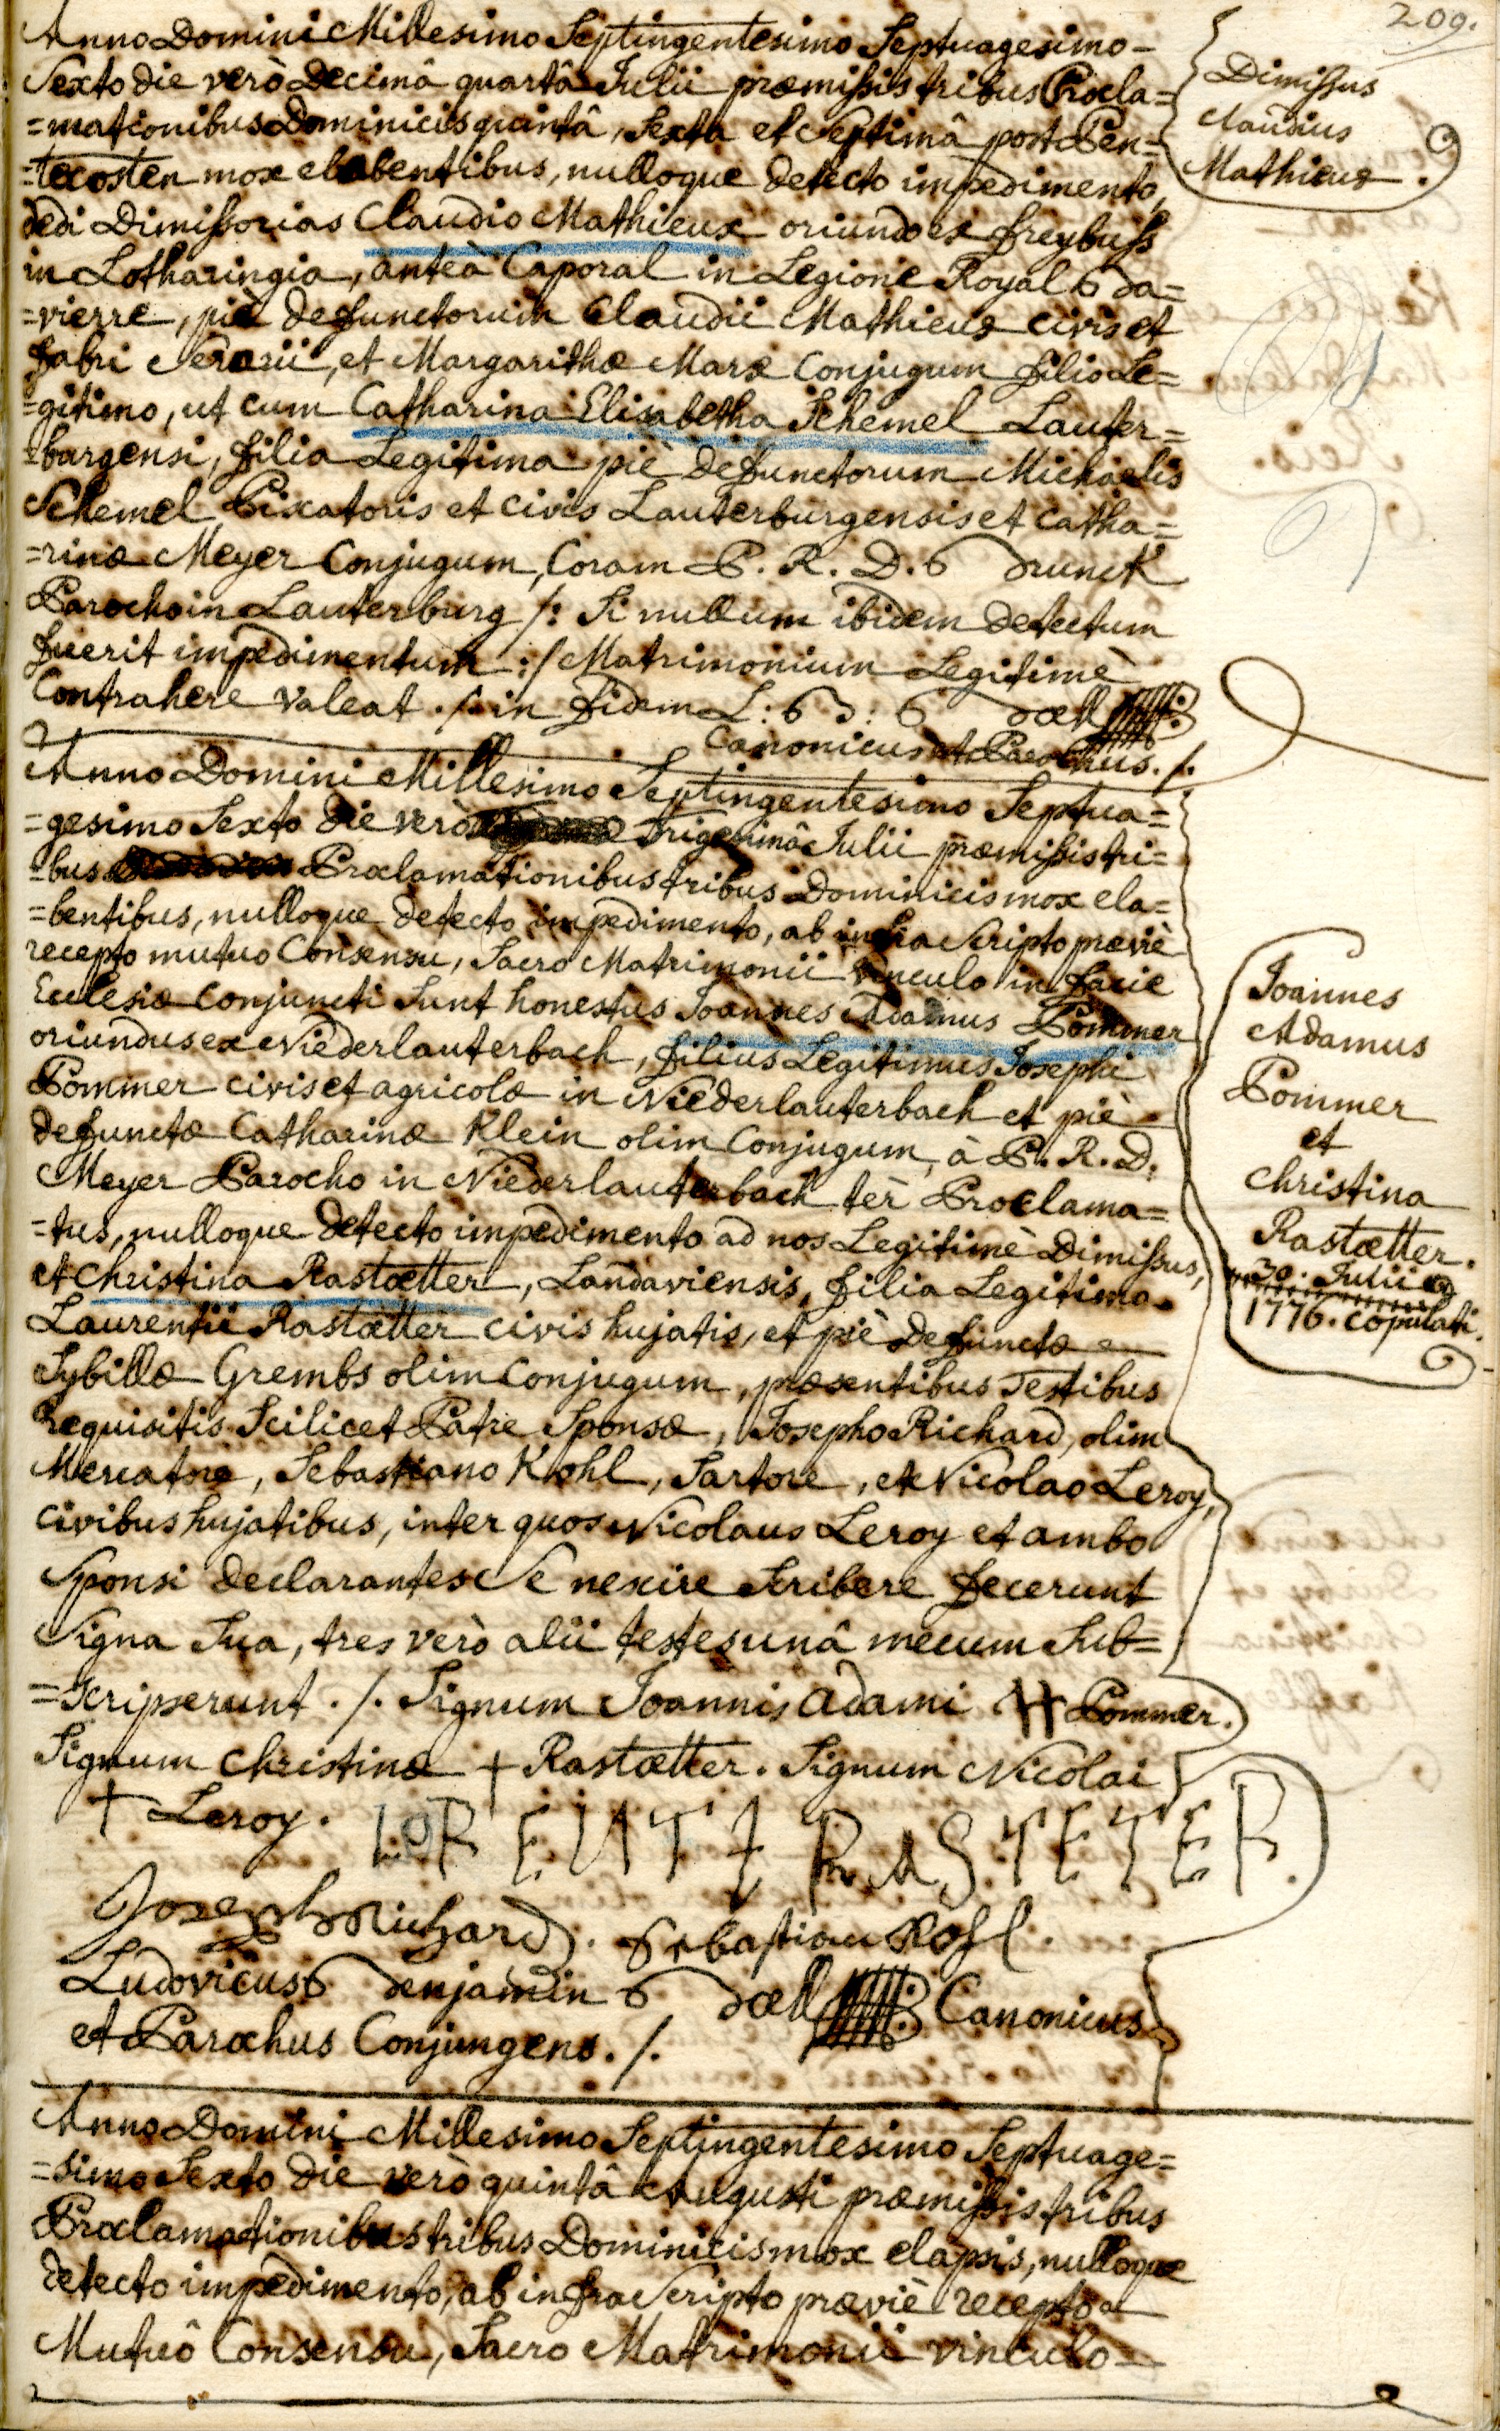 209.
Anno Domini Millesimo Septingentesimo Septuagesimo-
Sexto die verò Decimâ quartâ Julii præmissis tribus Procla=
=mationibus Dominicis quintâ, Sexta et Septimâ post Pen=
=tecosten mox elabentibus, nulloque detecto impedimento,
dedi Dimissorias Claudio Mathieux oriundo ex Freybuss
in Lotharingia, anteà Caporal in Legione Royal Ba=
=vierre, piè defunctorum Claudii Mathieux civis et
fabri Serarii, et Margarithæ Marx Conjugum filio Le=
=gitimo, ut cum Catharina Elisabetha Schemel Lauter=
=burgensi, filia Legitima piè defunctorum Michaelis
Schemel Pixatoris et civis Lauterburgensis et Catha=
=rinæ Meyer Conjugum, Coram P. R. D. Brunck
Parocho in Lauterburg /: Si nullum ibidem detectum
fuerit impedimentum :/ Matrimonium Legitimè
Contrahere valeat ./. in fidem L: B: Boell
Canonicus et Parochus. /.
Dimissus
Claudius
Mathieux.
Anno Domini Millesimo Septingentesimo Septua=
=gesimo Sexto die verò Trigesimâ Julii præmissis tri=
=bus Proclamationibus tribus Dominicis mox ela=
=bentibus, nulloque detecto impedimento, ab infra Scripto præviè
recepto mutuo Consensu, Sacro Matrimonii vinculo in facie
Ecclesiæ Conjuncti Sunt honestus Joannes Adamus Pommer
oriundus ex Niederlauterbach, filius Legitimus Josephi
Pommer civis et agricolæ in Niederlauterbach et piè
defunctæ Catharinæ Klein olim Conjugum, à P. R. D:
Meyer Parocho in Niederlauterbach ter Proclama=
=tus, nulloque detecto impedimento ad nos Legitimè Dimissus,
et Christina Rastætter, Landaviensis, filia Legitima
Laurentii Rastætter civis hujatis, et piè defunctæ
Sybillæ Grembs olim Conjugum, præsentibus Testibus
requisitis Scilicet Patre Sponsæ, Josepho Richard, olim
Mercatore, Sebastiano Kohl, Sartore, et Nicolao Leroy,
civibus hujatibus, inter quos Nicolaus Leroy et ambo
Sponsi declarantes Se nescire Scribere fecerunt
Signa Sua, tres verò alii testes unâ mecum Sub=
=scripserunt ./. Signum Joannis Adami H Pommer.
Signum Christinæ + Rastætter. Signum Nicolai
+ Leroy. LORENTZ RASTETER.
Joseph Richard. Sebastian Kohl.
Ludovicus Benjamin Boell Canonicus
et Parochus Conjungens ./.
Joannes
Adamus
Pommer
et
Christina
Rastætter.
30. Julii
1776. copulati.
Anno Domini Millesimo Septingentesimo Septuage=
=simo Sexto die verò quintâ Augusti præmissis tribus
Proclamationibus tribus Dominicis mox elapsis, nulloque
detecto impedimento, ab infra Scripto præviè recepto
Mutuô Consensu, Sacro Matrimonii vinculo